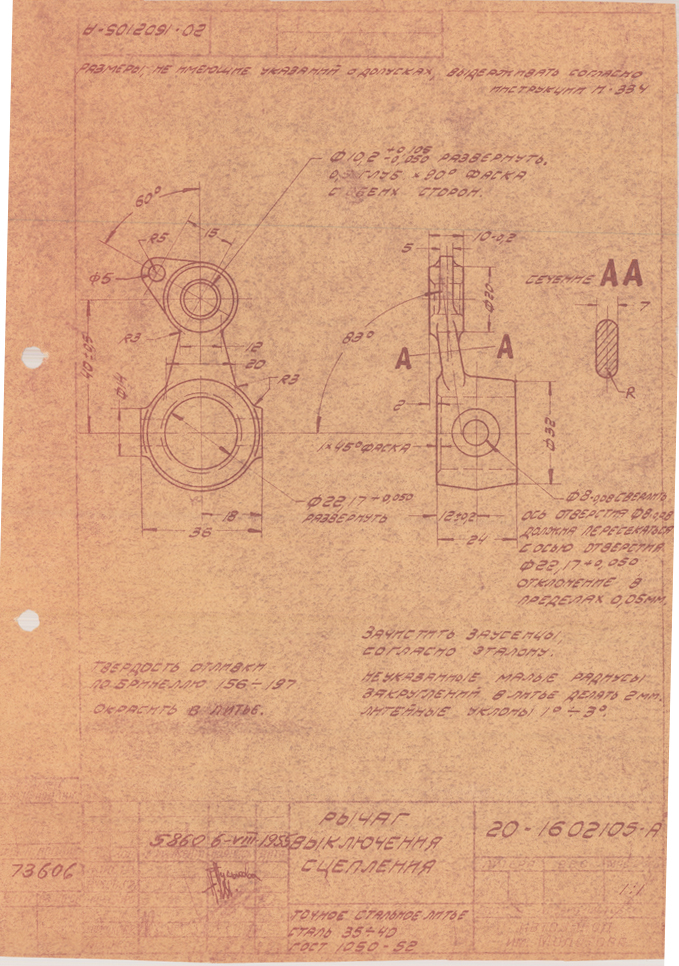 20-1602105-А
РАЗМЕРЫ, НЕ ИМЕЮЩИЕ УКАЗАНИЙ О ДОПУСКАХ, ВЫДЕРЖИВАТЬ СОГЛАСНО
ИНСТРУКЦИИ И-334
Ф10,2 +0,106 +0,050 РАЗВЕРНУТЬ,
0,5 ГЛУБ. × 90° ФАСКА
С ОБЕИХ СТОРОН.
60°
R5
15
Ф5
10-0,2
5
Ф20
СЕЧЕНИЕ АА
7
R
40±0,5
R3
12
20
R3
Ф14
83°
А
А
2
1×45° ФАСКА
Ф32
Ф22,17 +0,050
РАЗВЕРНУТЬ
18
36
12±0,2
24
Ф8+0,08 СВЕРЛИТЬ.
ОСЬ ОТВЕРСТИЯ Ф8+0,08
ДОЛЖНА ПЕРЕСЕКАТЬСЯ
С ОСЬЮ ОТВЕРСТИЯ
Ф22,17+0,050
ОТКЛОНЕНИЕ В
ПРЕДЕЛАХ 0,05ММ.
ЗАЧИСТИТЬ ЗАУСЕНЦЫ,
СОГЛАСНО ЭТАЛОНУ.
ТВЕРДОСТЬ ОТЛИВКИ
ПО БРИНЕЛЛЮ 156÷197
ОКРАСИТЬ В ЛИТЬЕ.
НЕУКАЗАННЫЕ МАЛЫЕ РАДИУСЫ
ЗАКРУГЛЕНИЙ В ЛИТЬЕ ДЕЛАТЬ 2ММ.
ЛИТЕЙНЫЕ УКЛОНЫ 1°÷3°.
73606
5860 6-VIII-1955
РЫЧАГ
ВЫКЛЮЧЕНИЯ
СЦЕПЛЕНИЯ
20-1602105-А
1:1
ТОЧНОЕ СТАЛЬНОЕ ЛИТЬЕ
СТАЛЬ 35÷40
ГОСТ 1050-52